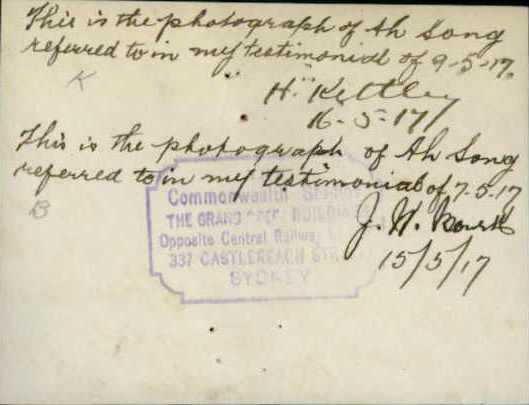 This is the photograph of Ah Song
referred to in my testimonial of 9-5-17.
K
H. Kettley
16-5-17
This is the photograph of Ah Song
referred to in my testimonial of 7-5-17
B
J. W.
15/5/17
Commonwealth
THE GRAND
Opposite Central Railway
337 CASTLEREAGH
SYDNEY